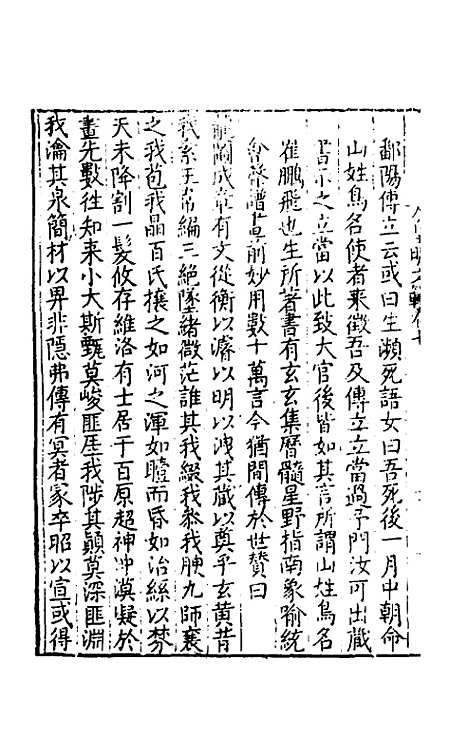 鄱陽傅立云或曰生瀕死語女曰吾死後一月中朝命
山姓鳥名使者來徵吾及傅立立當過予門汝可出藏
書示之立當以此致大官後皆如其言所謂山姓鳥名
崔鵬飛也生所著書有玄玄集曆髓星野指南象喻統
會聲譜前妙用數十萬言今猶間傳於世贊曰
龍圖成章有文從衡以濬以明以洩其藏以奠乎玄黃昔
我素王常編三絕墜緒微茫誰其我綴我彖我腴九師襄
之我苞我晶百氏櫰之如河之渾如曀而昏如治絲以棼
天未降割一髮攸存維洛有士居于百原超神沖漠凝於
畫先數往知来小大斯甄莫峻匪厓我陟其顛莫深匪淵
我瀹其泉簡材以畀非隱弗傳有冥者家卒昭以宣或得